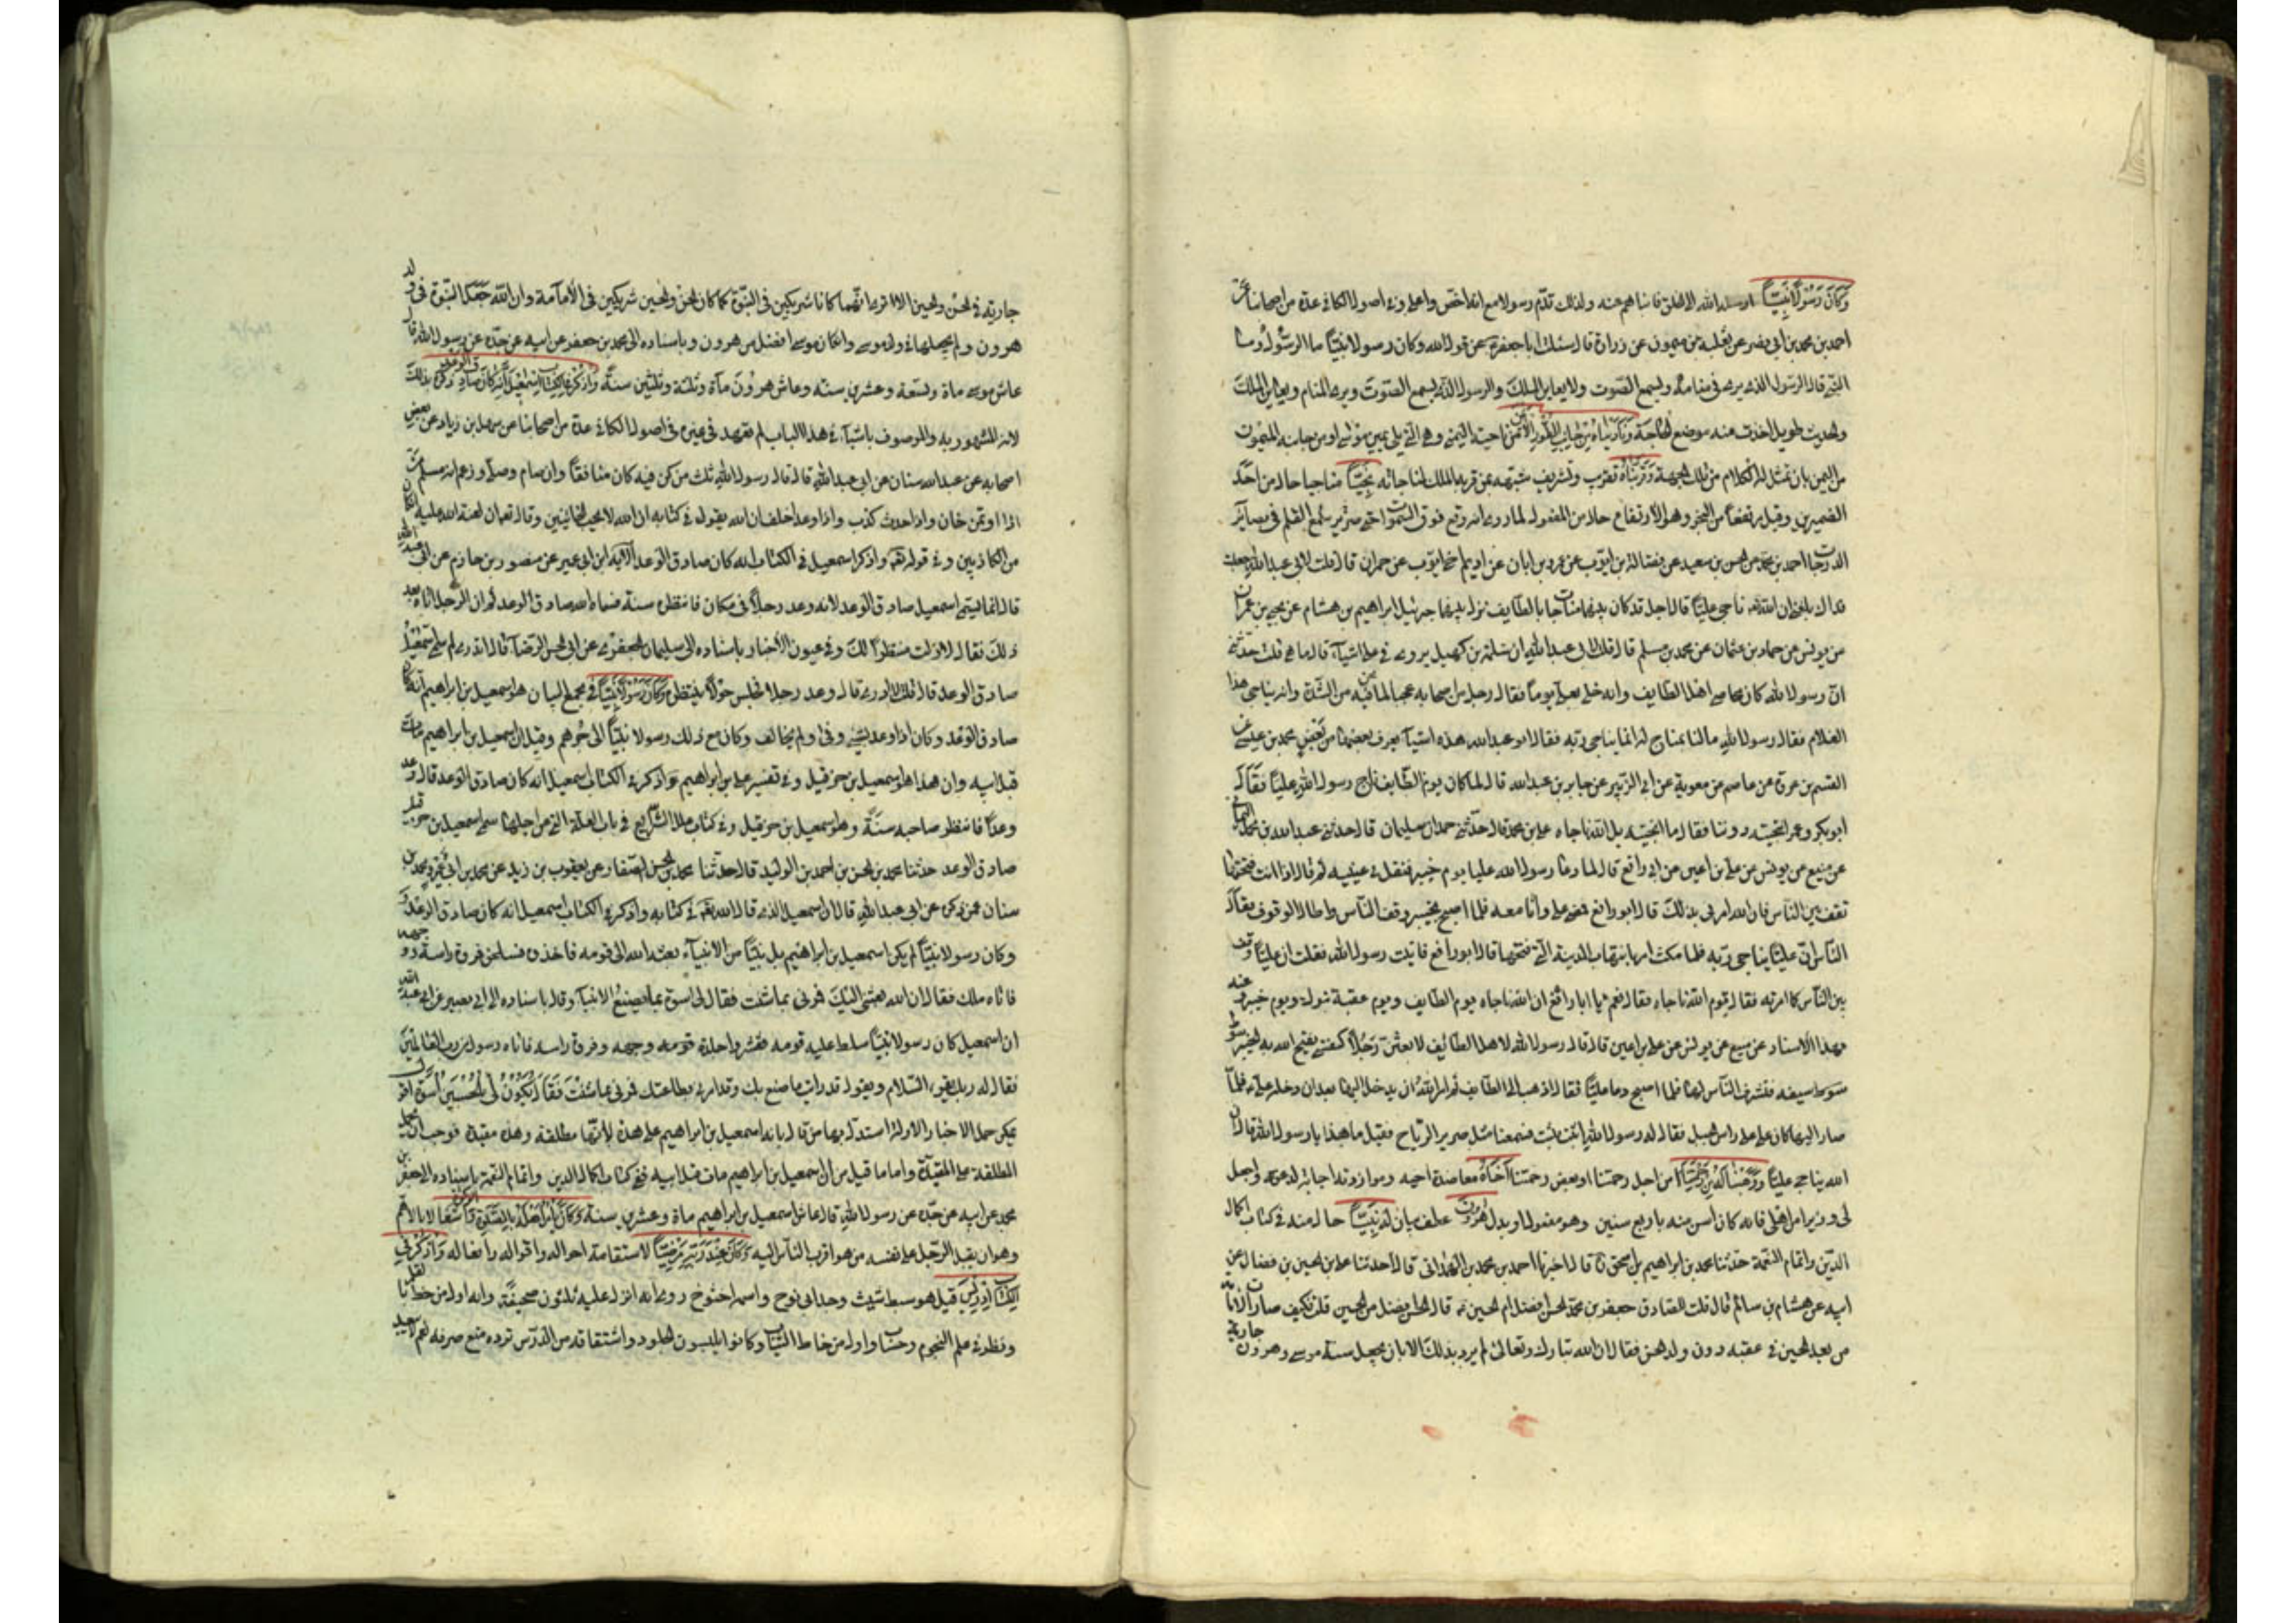 وَكَانَ رَسُولًا نَبِيًّا ارسله الله الى الخلق فانباهم عنه ولذلك قدّم رسولا مع انه اخص واعلى وفى اصول الكافى عدة من اصحابنا عن
احمد بن محمد بن ابى نصر عن ثعلبة بن ميمون عن زرارة قال سئلت ابا جعفر عن قول الله وكان رسولا نبيّا ما الرسول وما
النبى قال الرسول الذى يرى فى منامه ويسمع الصّوت ولا يعاين الملك والرسول الذى يسمع الصّوت ويرى المنام ويعاين الملك
والحديث طويل اخذت منه موضع الحاجة وَنَادَيْنَاهُ مِنْ جَانِبِ الطُّورِ الأَيْمَنِ ناحيته اليمنى وهى التى يلى يمين موسى او من جانبه الميمون
من اليمن بان تمثل له الكلام من تلك الجهة وَقَرَّبْنَاهُ تقرب وتشريف شبّهه بمن قربه الملك لمناجاته نَجِيًّا مناجيا حال من احد
الضميرين وقيل مرتفعا من النجو وهو الارتفاع حال من المفعول لما روى انه رفع فوق السموات حتى سمع صرير القلم فى بصائر
الدرجات احمد بن محمد عن الحسن بن سعيد عن فضالة بن ايوب عن عمرو بن ابان عن اديم اخى ايوب عن حمران قال قلت لابى عبد الله جعلت
فداك بلغنى ان الله ناجى عليّا قال اجل قد كان بينهما مناجاة بالطايف نزل بينهما جبرئيل ابراهيم بن هشام عن يحيى بن عمران
عن يونس عن حماد بن عثمان عن محمد بن مسلم قال قلت لابى عبد الله ان سلمة بن كهيل يروى فى على اشياء قال ما هى قلت حدثنى
انّ رسول الله كان محاصر اهل الطايف وانه خلى بعلى يوما فقال رجل من اصحابه عجبا لما نحن فيه من الشدة وانه يناجى هذا
الغلام فقال رسول الله ما انا بمناج له انما يناجى ربه فقال ابو عبد الله هذه اشياء يعرف بعضها من بعض محمد بن عيسى عن
القسم بن عروة عن عاصم عن معوية عن ابى الزبير عن جابر بن عبد الله قال لما كان يوم الطايف ناجى رسول الله عليا فقال
ابو بكر وعمر انتجيته دوننا فقال ما انتجيته بل الله ناجاه على بن محمد قال حدثنى حمدان سليمان قال حدثنى عبد الله بن محمد اليمانى
عن منيع عن يونس عن على بن اعين عن ابى رافع قال لما دعا رسول الله عليا يوم خيبر فتفل فى عينيه ثم قال اذا انت فتحتها
تقف بين الناس فان الله امرنى بذلك قال ابو رافع فمضى على وانا معه فلما اصبح بخيبر وقف الناس واطال الوقوف فقال
الناس ان عليا يناجى ربه فلما مكث امر بانتهاب المدينة التى فتحها قال ابو رافع فاتيت رسول الله فقلت ان عليا وقف
بين الناس كما امرته فقال قوم الله ناجاه فقال نعم يا ابا رافع ان الله ناجاه يوم الطايف ويوم عقبة تبوك ويوم خيبر عنه
بهذا الاسناد عن منيع عن يونس عن على بن اعين قال قال رسول الله لاهل الطايف لابعثن رجلا كنفسى يفتح الله به الخيبر سوطه
سيفه فتشرف الناس لها فلما اصبح دعا عليّا فقال اذهب الى الطايف ثم امر الله ان يدخل اليها بعد ان دخل على فلما
صار اليها كان على على راس الجبل فقال له رسول الله اثبت فثبت فسمعنا مثل صرير الرياح فقيل ما هذا يا رسول الله قال ان
الله يناجى عليّا وَوَهَبْنَا لَهُ مِنْ رَحْمَتِنَا من اجل رحمتنا او بعض رحمتنا اَخَاهُ معاضدة اخيه وموازرته اجابة لدعوته واجعل
لى وزيرا من اهلى فانه كان اسن منه باربع سنين وهو مفعول او بدل هٰرُونَ عطف بيان له نَبِيًّا حال منه فى كتاب كمال
الدين واتمام النعمة حدثنا محمد بن ابراهيم بن اسحق قال اخبرنا احمد بن محمد بن الهمدانى قال حدثنا على بن الحسين بن فضال عن
ابيه عن هشام بن سالم قال قلت للصادق جعفر بن محمد الحسن افضل ام الحسين قال الحسن افضل من الحسين قلت فكيف صارت الامامة
من بعد الحسين فى عقبه دون ولد الحسن فقال ان الله تبارك وتعالى لم يرد بذلك الا ان يجعل سنة موسى وهرون جارية
جارية فى الحسن والحسين الا ترى انهما كانا شريكين فى النبوة كما كان الحسن والحسين شريكين فى الامامة وان الله جعل النبوة فى ولد
هرون ولم يجعلها فى ولد موسى وان كان موسى افضل من هرون وباسناده الى محمد بن جعفر عن ابيه عن جده عن رسول الله قال
عاش موسى ماة وستة وعشرين سنة وعاش هرون ماة وثلثة وثلثين سنة وَاذْكُرْ فِى الْكِتَابِ إِسْمٰعِيلَ إِنَّهُ كَانَ صَادِقَ الْوَعْدِ ذكره بذلك
لانه المشهور به والموصوف باشياء فى هذا الباب لم تعهد فى غيره فى اصول الكافى عدة من اصحابنا عن سهل بن زياد عن بعض
اصحابه عن عبد الله سنان عن ابى عبد الله قال قال رسول الله ثلث من كن فيه كان منافقا وان صام وصلى وزعم انه مسلم من
اذا اوتمن خان واذا حدث كذب واذا وعد اخلف ان الله يقول فى كتابه ان الله لا يحب الخائنين وقال تعالى ان لعنة الله عليه ان كان
من الكاذبين وفى قوله واذكر اسمعيل فى الكتاب انه كان صادق الوعد الآية ابن ابى عمير عن منصور بن حازم عن ابى عبد الله
قال انما سمى اسمعيل صادق الوعد لانه وعد رجلا فى مكان فانتظره سنة فسماه الله صادق الوعد ثم ان الرجل اتاه بعد
ذلك فقال لا زلت منتظرا لك وفى عيون الاخبار باسناده الى سليمان الجعفرى عن ابى الحسن الرضا قال اتدرى لم سمى اسمعيل
صادق الوعد قال قلت لا ادرى قال وعد رجلا فجلس حولا ينتظره وَكَانَ رَسُولًا نَبِيًّا فى مجمع البيان هو اسمعيل بن ابراهيم انه كان
صادق الوعد وكان اذا وعد بشىء وفى ولم يخالف وكان مع ذلك رسولا نبيّا الى جرهم وقيل ان اسمعيل بن ابراهيم مات
قبل ابيه وان هذا هو اسمعيل بن حزقيل وفى تفسير على بن ابراهيم واذكر فى الكتاب اسمعيل انه كان صادق الوعد قال وعد
وعدا فانتظر صاحبه سنة وهو اسمعيل بن حزقيل وفى كتاب علل الشرايع فى باب العلة التى من اجلها سمى اسمعيل بن حزقيل
صادق الوعد حدثنا محمد بن الحسن بن احمد بن الوليد قال حدثنا محمد بن الحسن الصفار عن يعقوب بن زيد عن محمد بن ابى عمير ومحمد بن
سنان عمن ذكره عن ابى عبد الله قال ان اسمعيل الذى قال الله فى كتابه واذكر فى الكتاب اسمعيل انه كان صادق الوعد
وكان رسولا نبيّا لم يكن اسمعيل بن ابراهيم بل نبيّا من الانبياء بعثه الله الى قومه فاخذوه فسلخوا فروة راسه ووجهه
فاتاه ملك فقال ان الله بعثنى اليك فمرنى بما شئت فقال لى اسوة بما يصنع الانبياء وقال باسناده الى ابى بصير عن ابى عبد الله
ان اسمعيل كان رسولا نبيّا سلط عليه قومه فقشروا جلدة وجهه وفروة راسه فاتاه رسول من رب العالمين
فقال له ربك يقرئك السلام ويقول قد رايت ما صنع بك وقد امرنى بطاعتك فمرنى بما شئت فقال يكون لى بالحسين اسوة اقول
يمكن حمل الاخبار الاولة استدل بها من قال بانه اسمعيل بن ابراهيم على هذه لانها مطلقة وهذه مقيدة فوجب حمل
المطلقة على المقيدة واما ما قيل من ان اسمعيل بن ابراهيم مات قبل ابيه ففى كتاب اكمال الدين واتمام النعمة باسناده الى جعفر بن
محمد عن ابيه عن جده عن رسول الله قال عاش اسمعيل بن ابراهيم ماة وعشرين سنة وَكَانَ يَأْمُرُ أَهْلَهُ بِالصَّلٰوةِ وَالزَّكٰوةِ اشتغالا بالاهم
وهو ان يقبل الرجل على نفسه من هو اقرب الناس اليه وَكَانَ عِنْدَ رَبِّهِ مَرْضِيًّا لاستقامة احواله واقواله وافعاله وَاذْكُرْ فِى
الْكِتَابِ إِدْرِيسَ قيل هو سبط شيث وجد ابى نوح واسمه اخنوخ روى انه انزل عليه ثلثون صحيفة وانه اول من خط بالقلم
ونظر فى علم النجوم وحساب واول من خاط الثياب وكانوا يلبسون الجلود واشتقاقه من الدرس ترده منع صرفه نعم لا يبعد